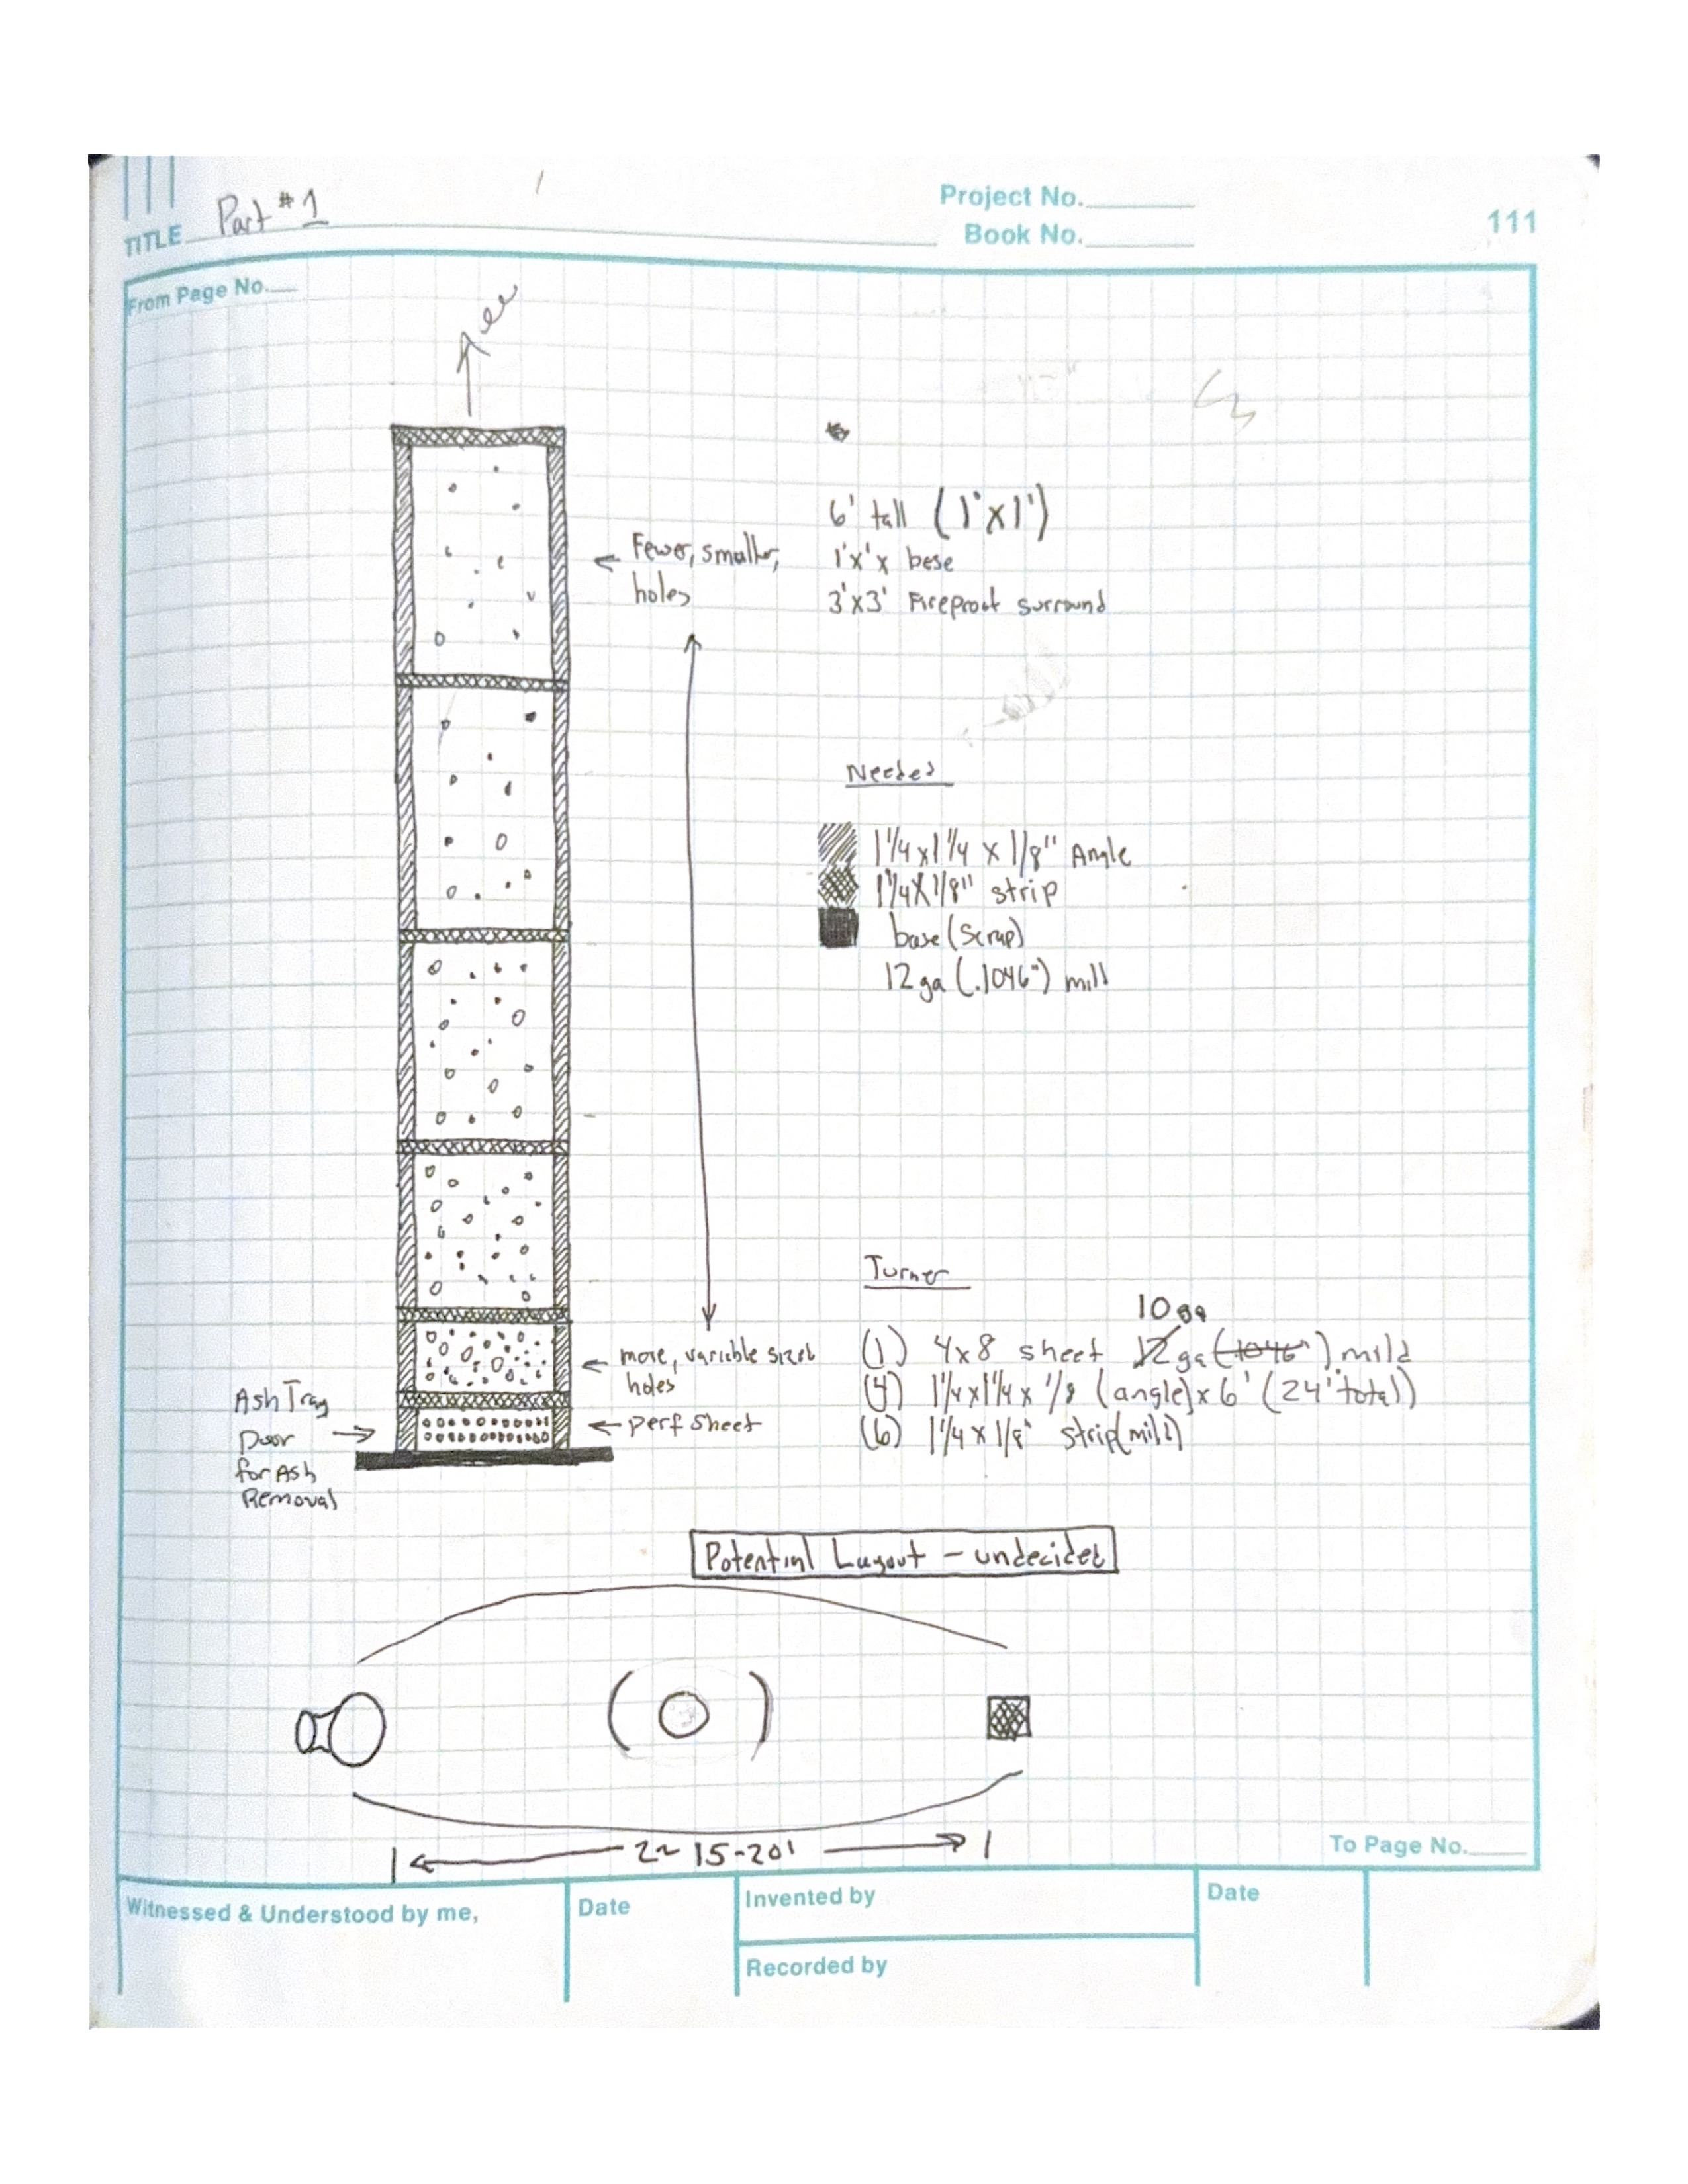 Project No.
TITLE Part #1
Book No.
111
From Page No.
6' tall (1'x1')
Fewer, smaller,
holes
1'x'x bese
3'x3' Fireproof surround
Needed
1 1/4 x 1 1/4 x 1/8" Angle
1 1/4 X 1/8" strip
base (Scrap)
12 ga (.1046") mill
Turner
10 ga
(1) 4x8 sheet 12 ga (.1046") mild
(4) 1 1/4 x 1 1/4 x 1/8 (angle) x 6' (24' total)
(6) 1 1/4 x 1/8" strip (mild)
more, variable sized
holes
perf sheet
Ash Tray
Door
for Ash
Removal
Potential Layout - undecided
15-20'
To Page No.
Witnessed & Understood by me,
Date
Invented by
Date
Recorded by